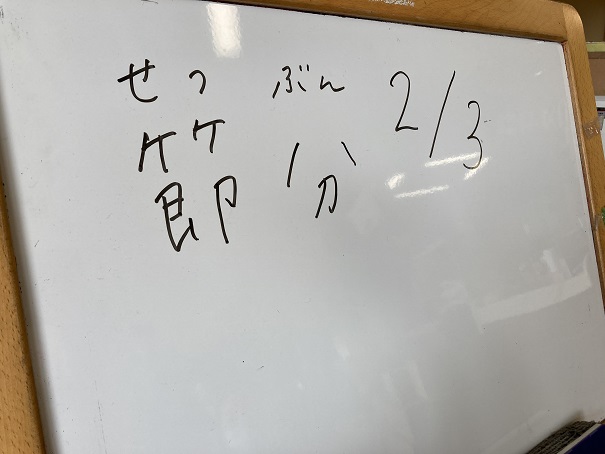 せつ ぶん 2/3
節分